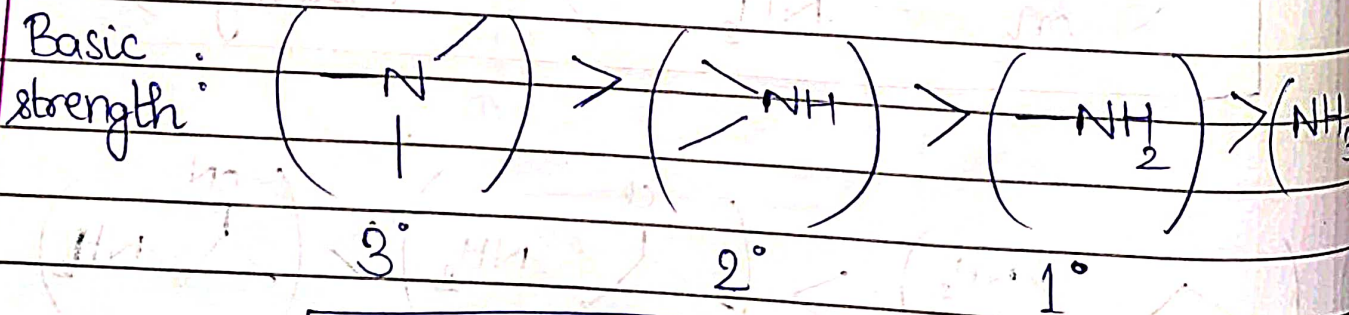 Basic
strength : (—N) > (>NH) > (—NH2) > (NH3
3° 2° 1°